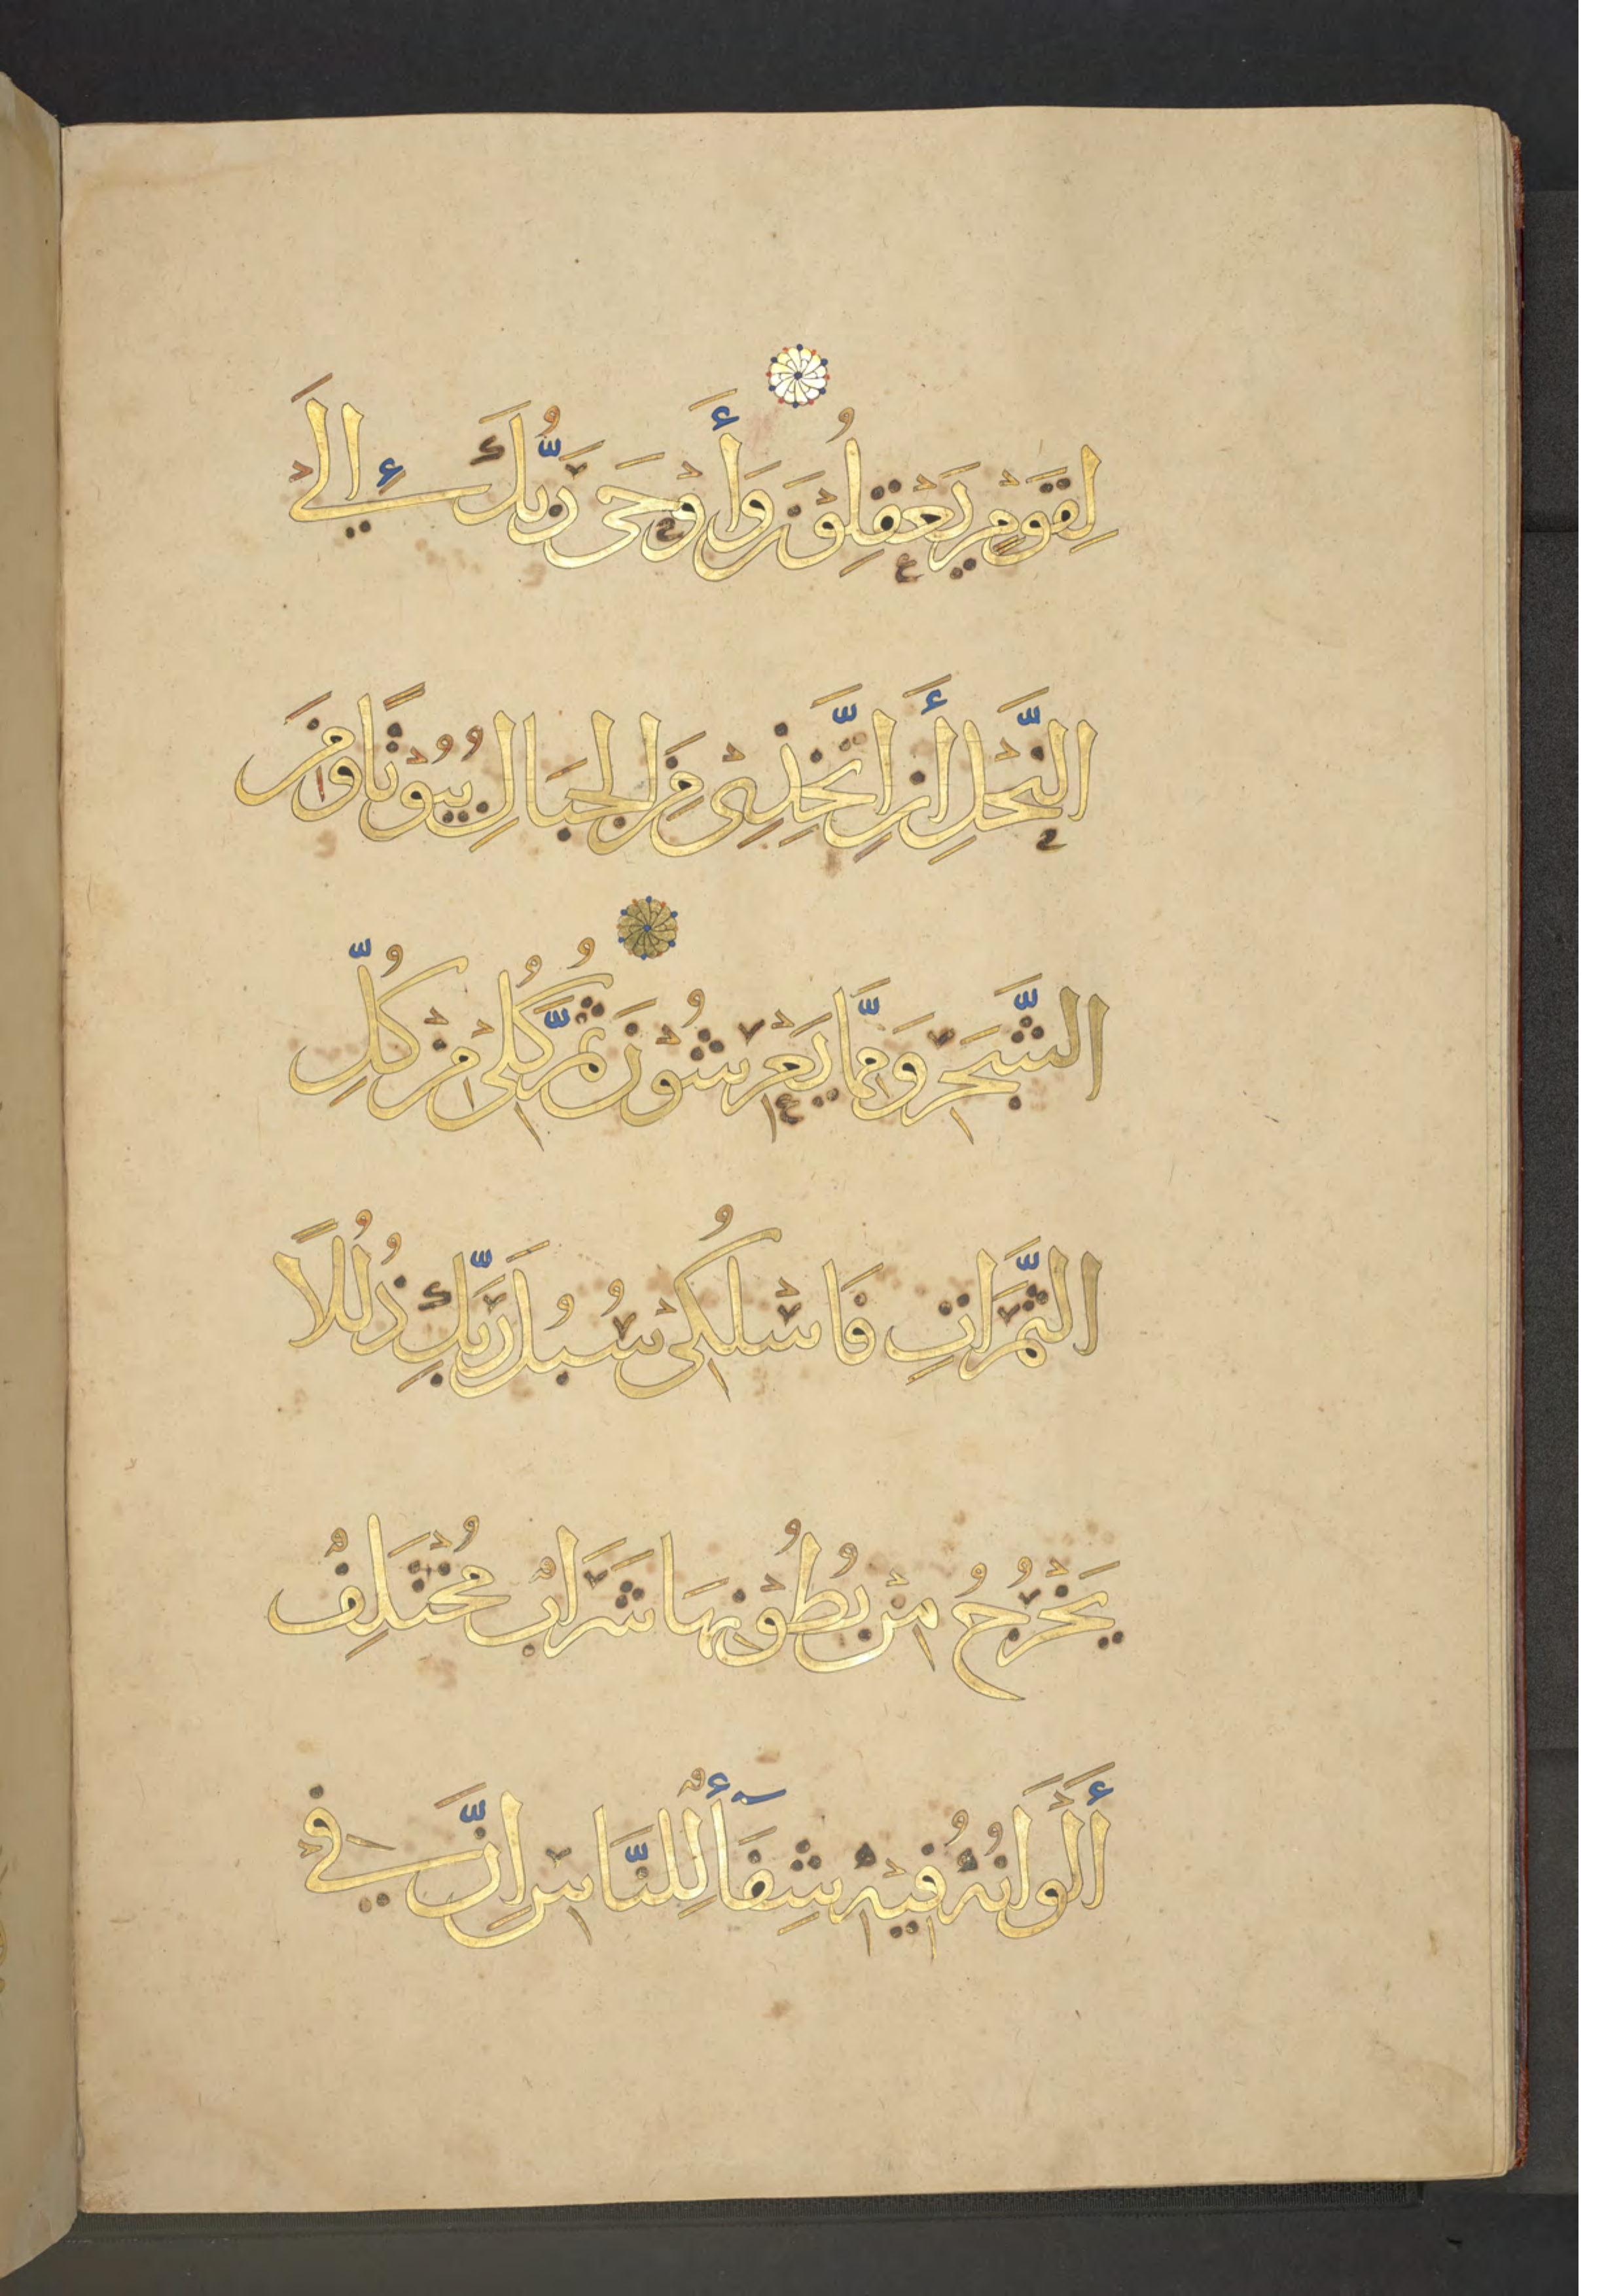 لِقَوْمٍ يَعْقِلُوْنَ وَأَوْحَى رَبُّكَ إِلَى
النَّحْلِ أَنِ اتَّخِذِىْ مِنَ الْجِبَالِ بُيُوْتًا وَمِنَ
الشَّجَرِ وَمِمَّا يَعْرِشُوْنَ ثُمَّ كُلِىْ مِنْ كُلِّ
الثَّمَرَاتِ فَاسْلُكِىْ سُبُلَ رَبِّكِ ذُلُلًا
يَخْرُجُ مِنْ بُطُوْنِهَا شَرَابٌ مُخْتَلِفٌ
أَلْوَانُهُ فِيْهِ شِفَآءٌ لِلنَّاسِ إِنَّ فِيْ